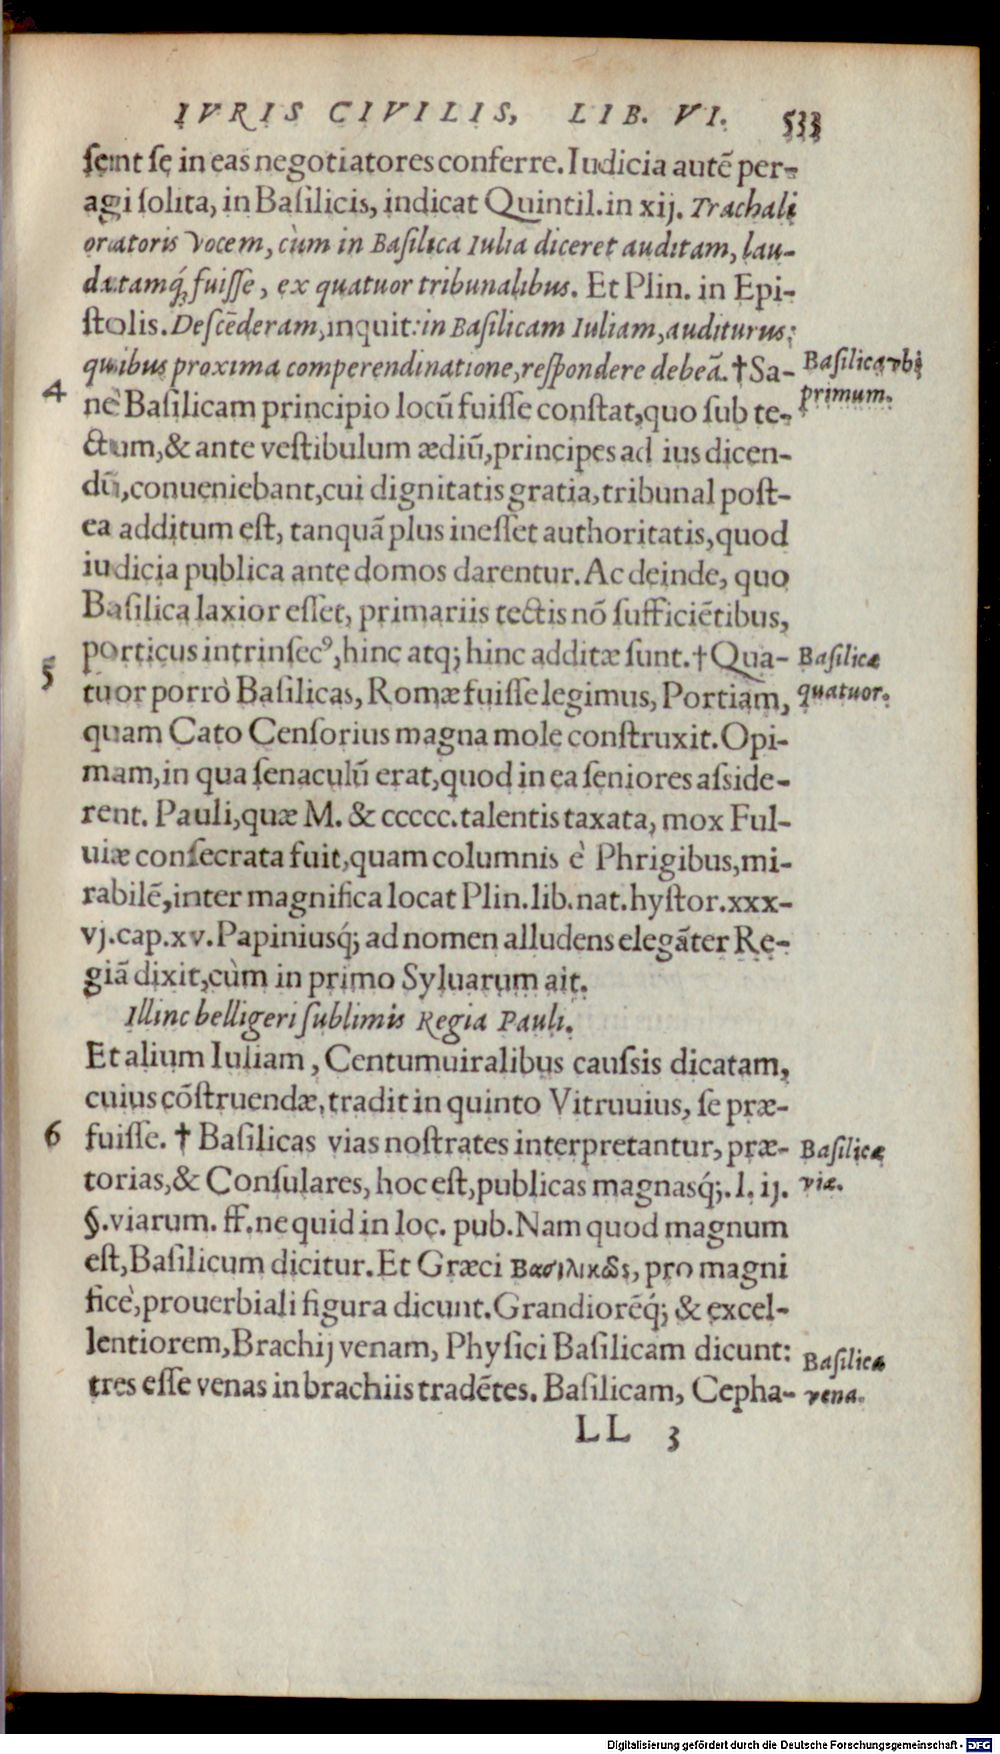 IVRIS CIVILIS, LIB. VI. 533
ſent ſe in eas negotiatores conferre. Iudicia autē per-
agi ſolita, in Baſilicis, indicat Quintil. in xij. Trachali
oratoris vocem, cùm in Baſilica Iulia diceret auditam, lau-
datamq́; fuiſſe, ex quatuor tribunalibus. Et Plin. in Epi-
ſtolis. Deſcēderam, inquit: in Baſilicam Iuliam, auditurus:
quibus proxima comperendinatione, reſpondere debeā. † Sa-
Baſilica vbi
primum.
4
nè Baſilicam principio locū fuiſſe conſtat, quo ſub te-
ctum, & ante veſtibulum ædiū, principes ad ius dicen-
dū, conueniebant, cui dignitatis gratia, tribunal poſt-
ea additum eſt, tanquā plus ineſſet authoritatis, quod
iudicia publica ante domos darentur. Ac deinde, quo
Baſilica laxior eſſet, primariis tectis nō ſufficiētibus,
porticus intrinſecꝰ, hinc atq; hinc additæ ſunt. † Qua-
Baſilicæ
quatuor.
5
tuor porrò Baſilicas, Romæ fuiſſe legimus, Portiam,
quam Cato Cenſorius magna mole conſtruxit. Opi-
mam, in qua ſenaculū erat, quod in ea ſeniores aſside-
rent. Pauli, quæ M. & ccccc. talentis taxata, mox Ful-
uiæ conſecrata fuit, quam columnis è Phrigibus, mi-
rabilē, inter magnifica locat Plin. lib. nat. hyſtor. xxx-
vj. cap. xv. Papiniusq́; ad nomen alludens elegāter Re-
giā dixit, cùm in primo Syluarum ait.
Illinc belligeri ſublimis Regia Pauli.
Et alium Iuliam, Centumuiralibus cauſsis dicatam,
cuius cōſtruendæ, tradit in quinto Vitruuius, ſe præ-
6
fuiſſe. † Baſilicas vias noſtrates interpretantur, præ-
Baſilicæ
viæ.
torias, & Conſulares, hoc eſt, publicas magnasq́;. l. ij.
§. viarum. ff. ne quid in loc. pub. Nam quod magnum
eſt, Baſilicum dicitur. Et Græci Βασιλικῶς, pro magni
ficè, prouerbiali figura dicunt. Grandiorēq́; & excel-
lentiorem, Brachij venam, Phyſici Baſilicam dicunt:
Baſilica
vena.
tres eſſe venas in brachiis tradētes. Baſilicam, Cepha-
LL 3
Digitalisierung gefördert durch die Deutsche Forschungsgemeinschaft - DFG